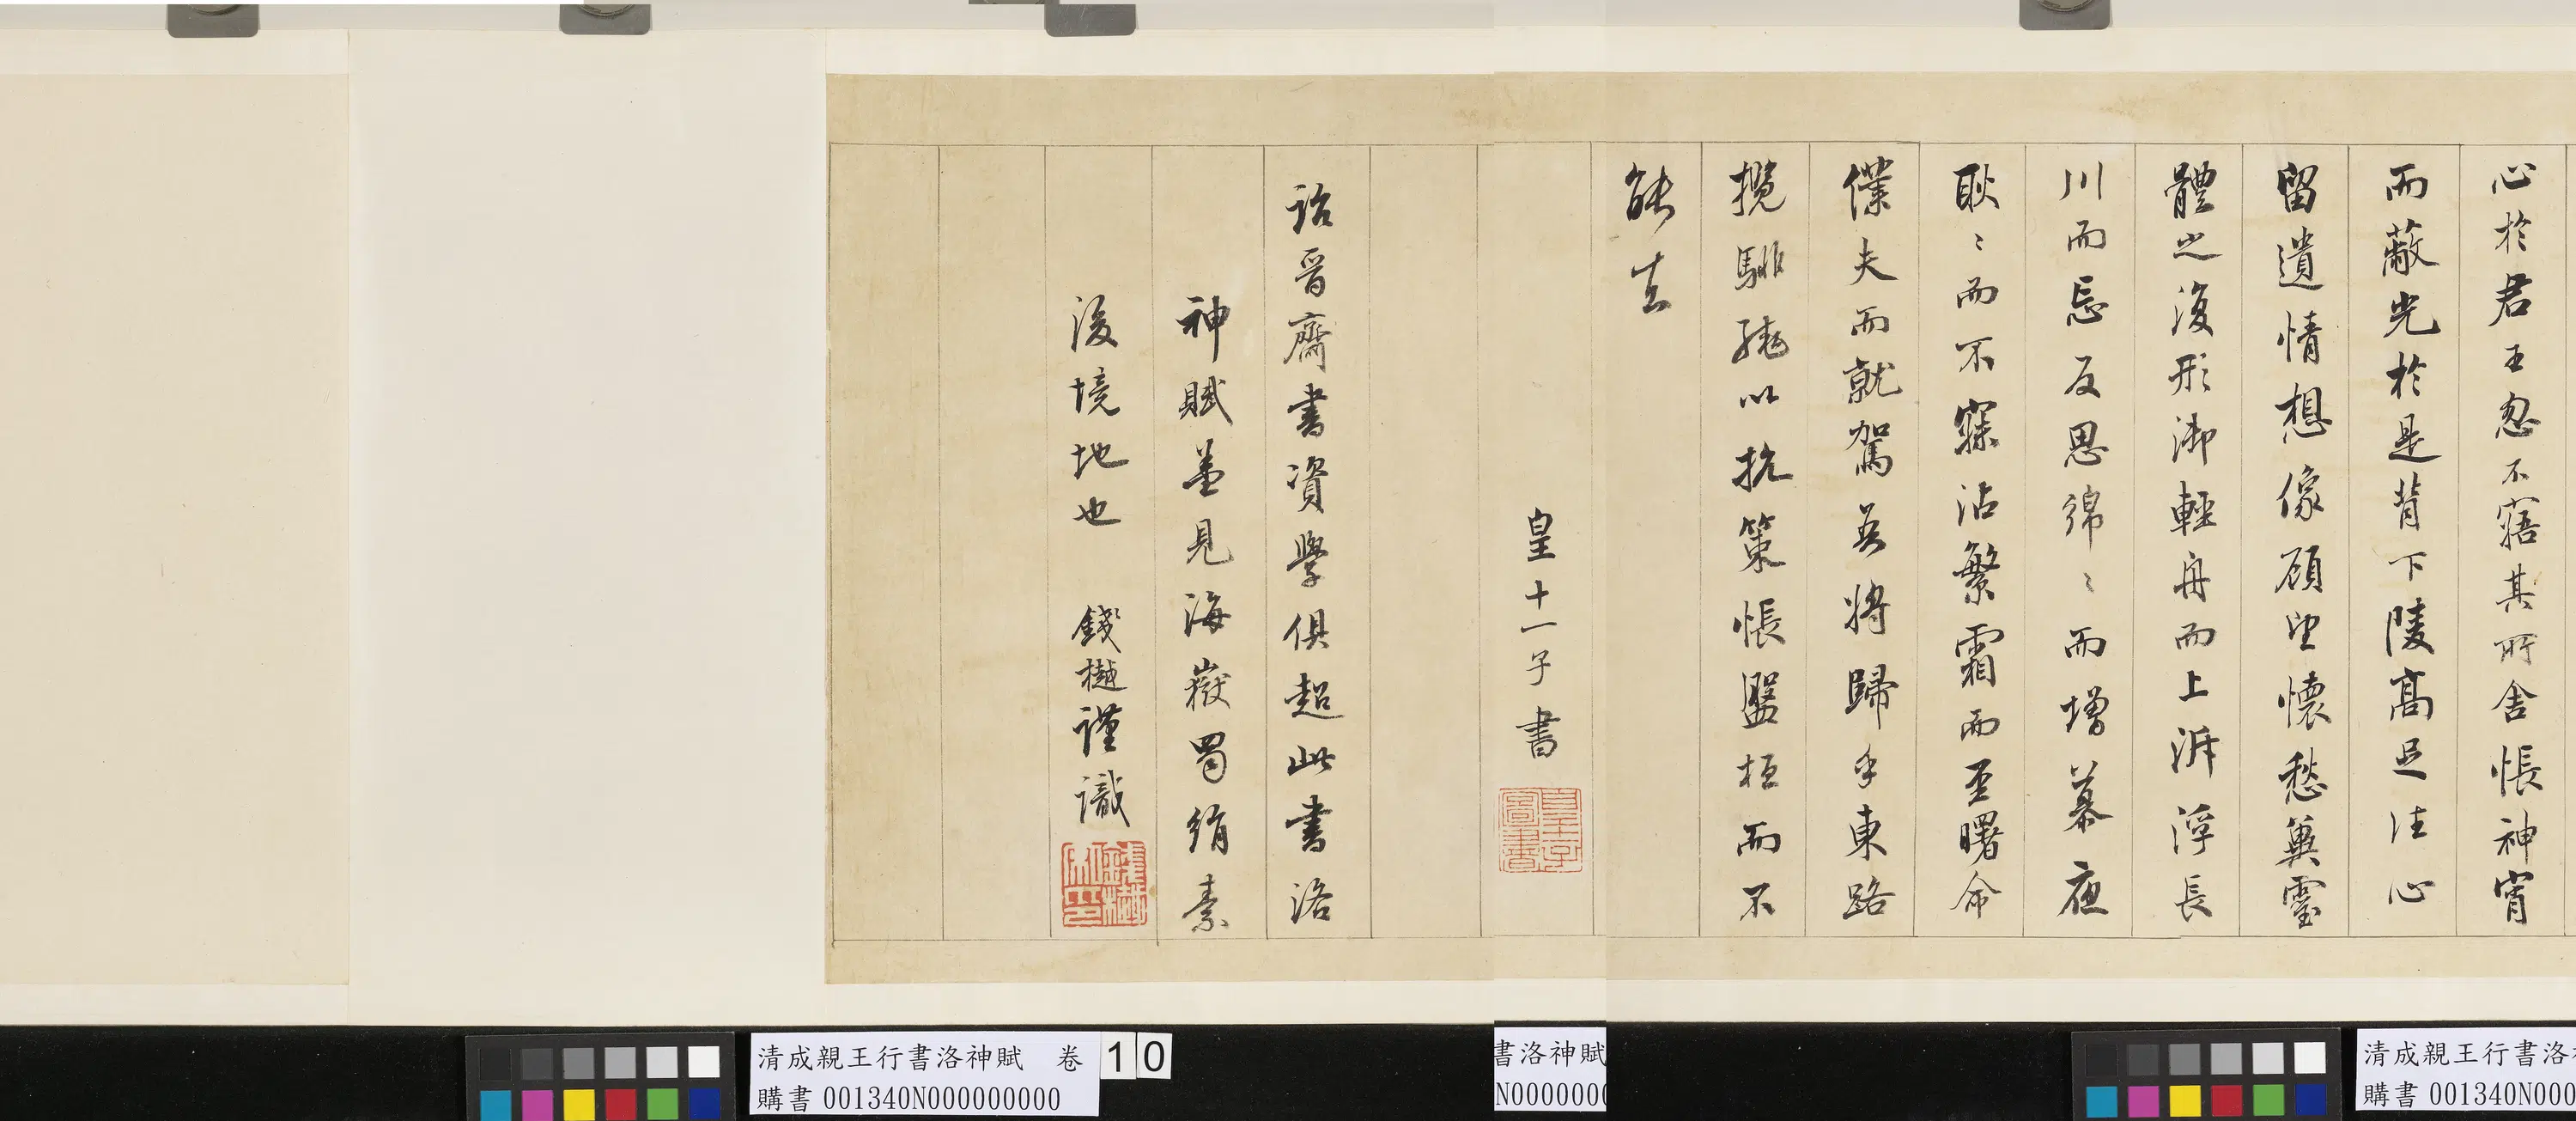 心於君王忽不寤其所舍悵神宵
而蔽光於是背下陵高足往心
留遺情想像顧望懷愁冀靈
體之復形御輕舟而上泝浮長
川而忘反思綿〻而增慕夜
耿〻而不寐沾繁霜而至曙命
僕夫而就駕吾將歸乎東路
攬騑轡以抗策悵盤桓而不
能去
皇十一子書
詒晉齋書資學俱超此書洛
神賦並見海嶽蜀絹素
後境地也 錢樾謹識
清成親王行書洛神賦 卷 10
購書 001340N000000000
書洛神賦
N0000000
清成親王行書洛
購書 001340N000